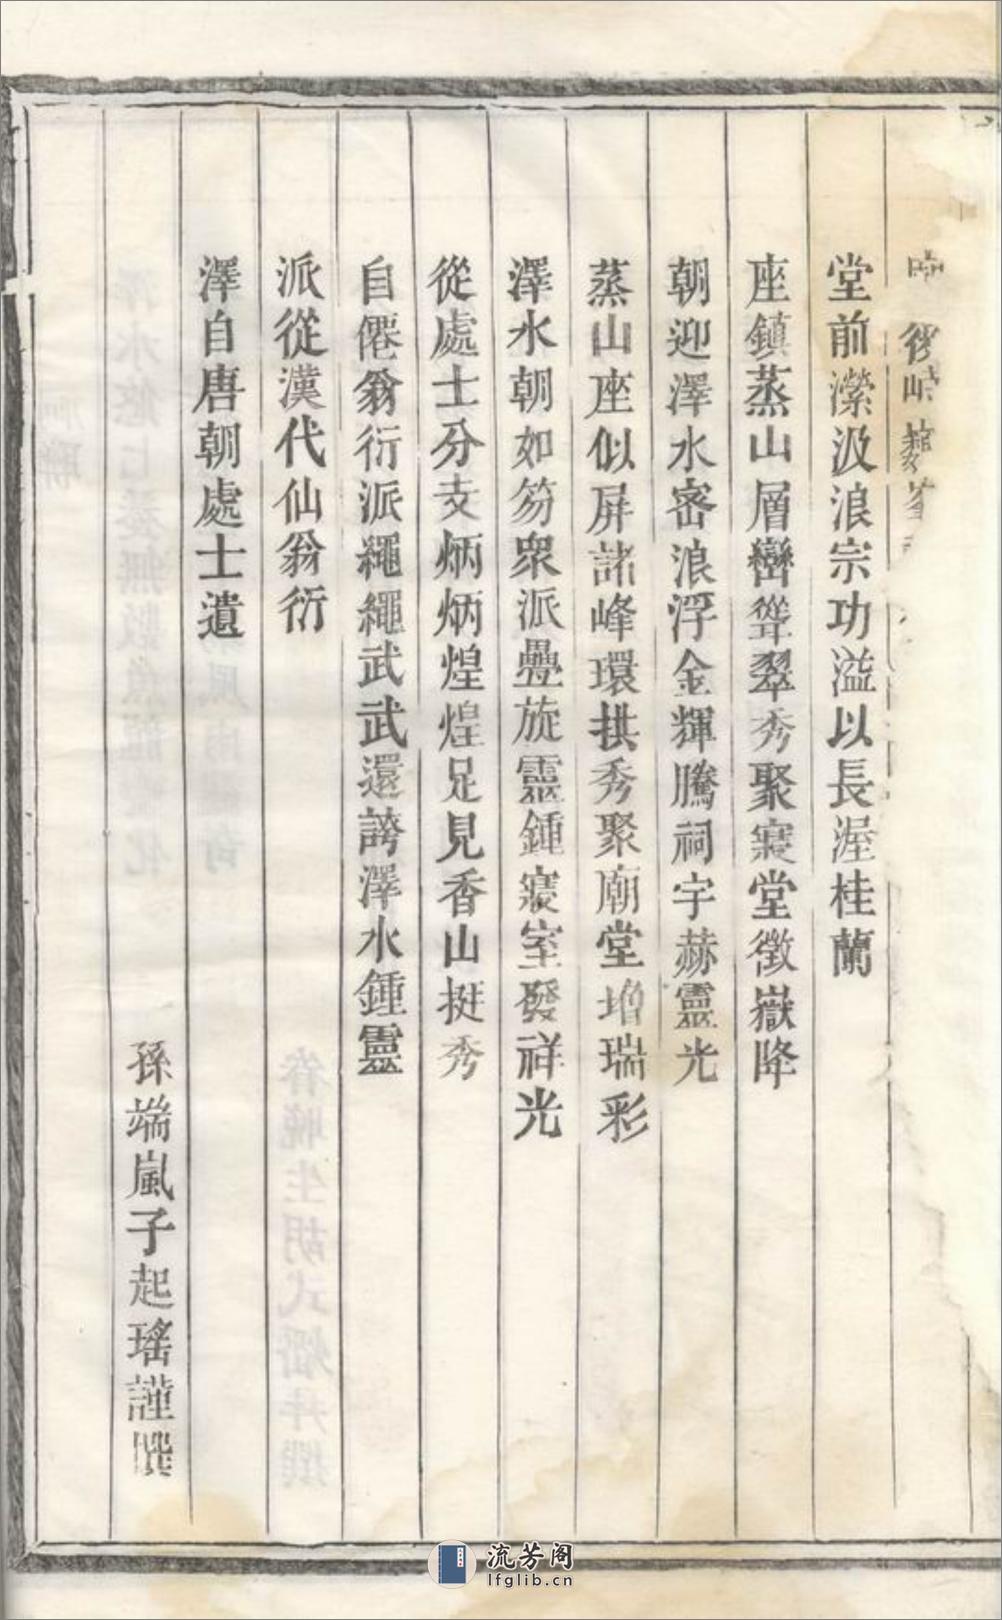 後
堂前瀠汲浪宗功溢以長渥桂蘭
座鎮蒸山層巒聳翠秀聚寢堂徵嶽降
朝迎澤水密浪浮金輝騰祠宇赫靈光
蒸山座似屏諸峰環拱秀聚廟堂增瑞彩
澤水朝如笏衆派疊旋靈鍾寢室發祥光
從處士分支炳炳煌煌足見香山挺秀
自僊翁衍派繩繩武武還誇澤水鍾靈
派從漢代仙翁衍
澤自唐朝處士遺
孫端嵐子起瑤謹撰
流芳阁
lfglib.cn